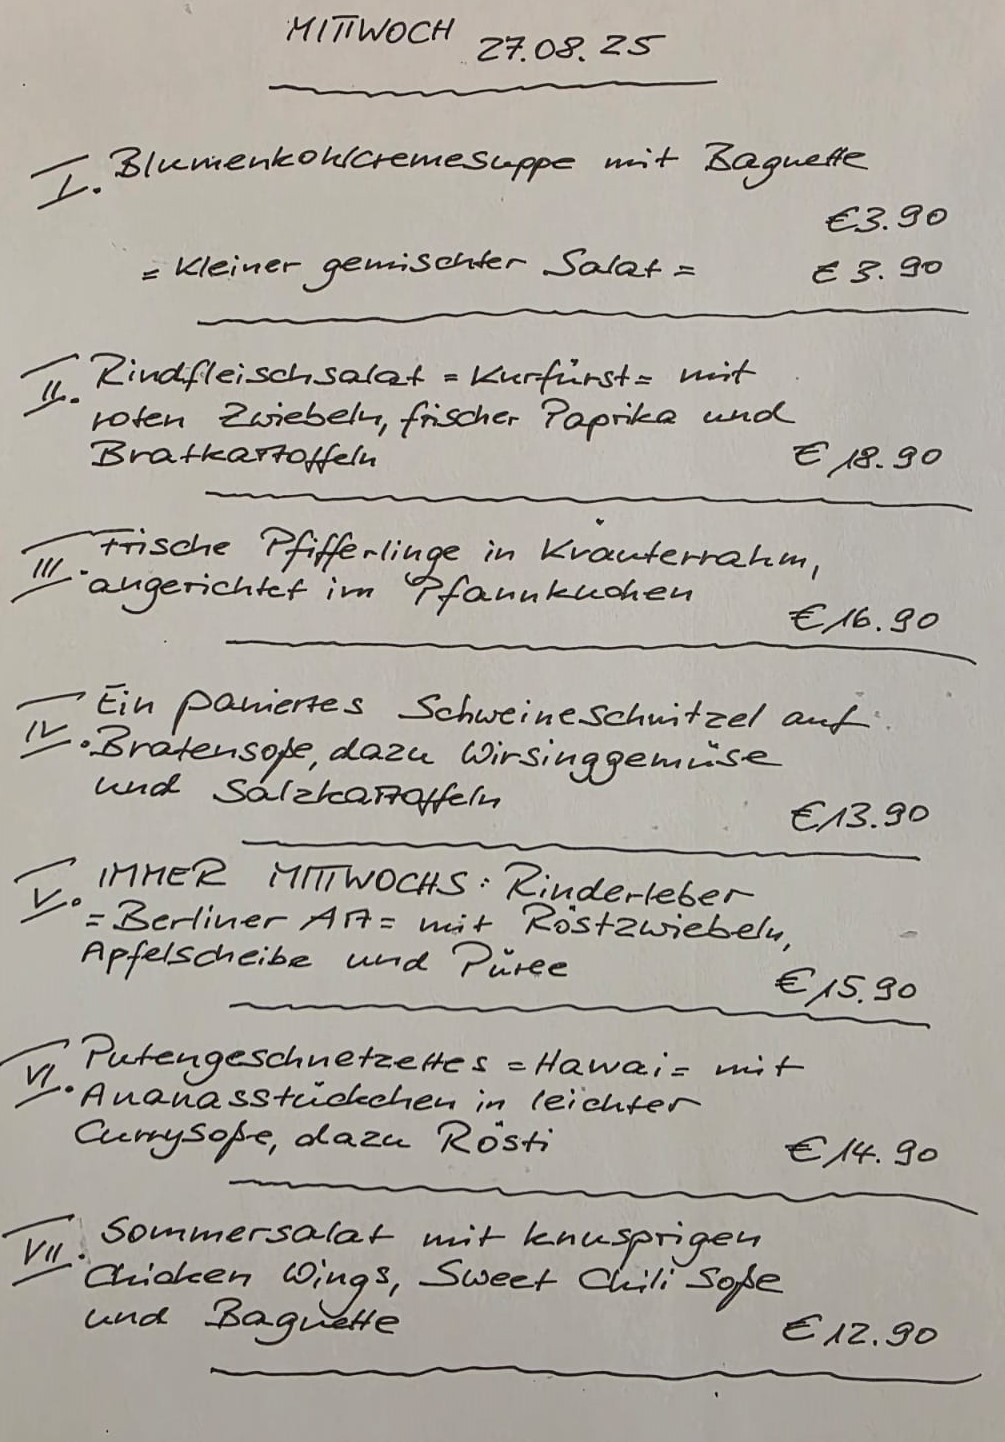 MITTWOCH 27.08.25
I. Blumenkohlcremesuppe mit Baguette
€3.90
= Kleiner gemischter Salat = € 3.90
II. Rindfleischsalat = Kurfürst = mit
roten Zwiebeln, frischer Paprika und
Bratkartoffeln € 18.90
III. Frische Pfifferlinge in Kräuterrahm,
angerichtet im Pfannkuchen
€ 16.90
IV. Ein paniertes Schweineschnitzel auf
Bratensoße, dazu Wirsinggemüse
und Salzkartoffeln
€ 13.90
V. IMMER MITTWOCHS: Rinderleber
= Berliner Art = mit Röstzwiebeln,
Apfelscheibe und Püree
€ 15.90
VI. Putengeschnetzeltes = Hawai = mit
Ananasstückchen in leichter
Currysoße, dazu Rösti € 14.90
VII. Sommersalat mit knusprigen
Chicken Wings, Sweet Chili Soße
und Baguette € 12.90